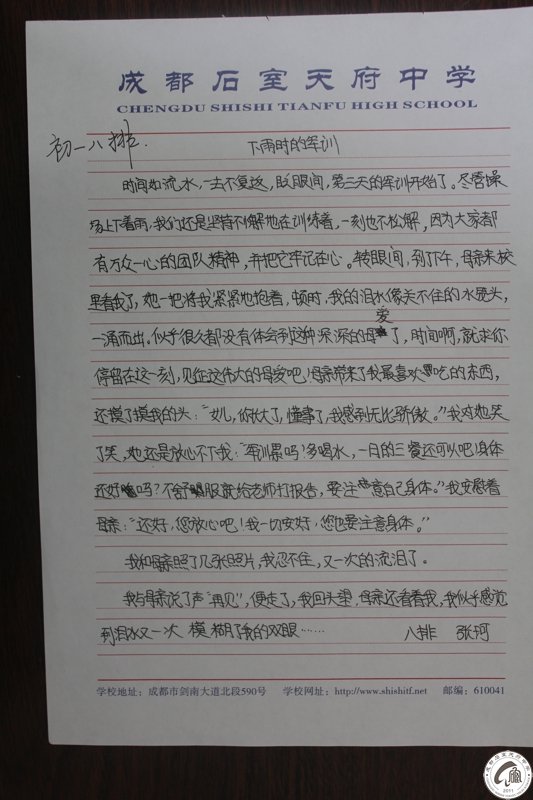 成都石室天府中学
CHENGDU SHISHI TIANFU HIGH SCHOOL
初一八排.
下雨时的军训
时间如流水,一去不复返,眨眼间,第三天的军训开始了。尽管操
场上下着雨,我们还是坚持不懈地在训练着,一刻也不松懈,因为大家都
有万众一心的团队精神,并把它牢记在心。转眼间,到了下午,母亲来校
里看我了,她一把将我紧紧地抱着,顿时,我的泪水像关不住的水龙头,
一涌而出。似乎很久都没有体会到这种深深的母爱了,时间啊,就求你
停留在这一刻,见证这伟大的母爱吧!母亲带来了我最喜欢吃的东西,
还摸了摸我的头:“女儿,你长大了,懂事了,我感到无比骄傲。”我对她笑
了笑,她还是放心不下我:“军训累吗?多喝水,一日的三餐还可以吧!身体
还好吗?不舒服就给老师打报告,要注意自己身体。”我安慰着
母亲:“还好,您放心吧!我一切安好,您也要注意身体。”
我和母亲照了几张照片,我忍不住,又一次的流泪了。
我与母亲说了声“再见”,便走了,我回头望,母亲还看着我,我似乎感觉
到泪水又一次模糊了我的双眼……
八排 张珂
学校地址:成都市剑南大道北段590号 学校网址:http://www.shishitf.net 邮编:610041
2011